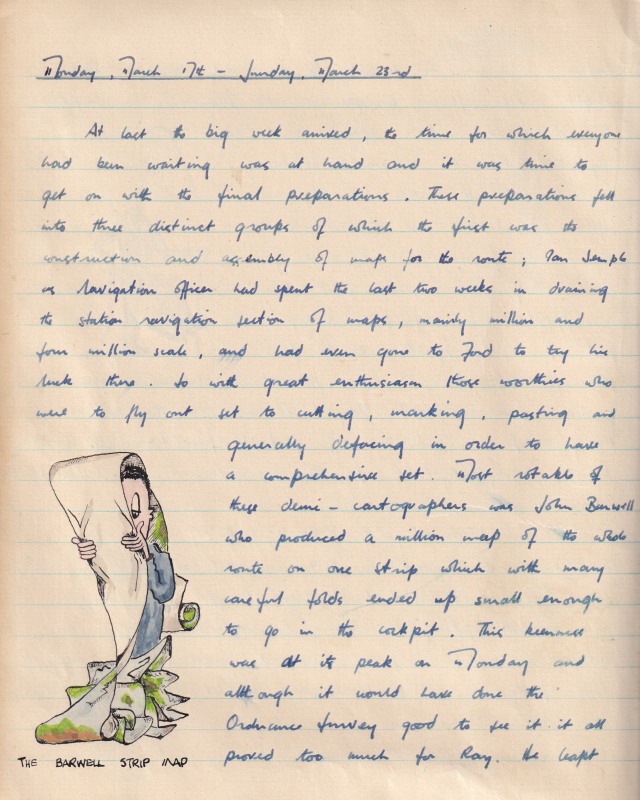 Monday, March 17th - Sunday, March 23rd
At last the big week arrived, the time for which everyone
had been waiting was at hand and it was time to
get on with the final preparations. These preparations fell
into three distinct groups of which the first was the
construction and assembly of maps for the route; Ian Semple
as Navigation officer had spent the last two weeks in draining
the station navigation section of maps, mainly million and
four million scale, and had even gone to Ford to try his
luck there. So with great enthusiasm those worthies who
were to fly out set to cutting, marking, pasting and
generally defacing in order to have
a comprehensive set. Most notable of
these demi-cartographers was John Barwell
who produced a million map of the whole
route on one strip which with many
careful folds ended up small enough
to go in the cockpit. This keenness
was at its peak on Monday and
although it would have done the
Ordnance Survey good to see it it all
proved too much for Ray. He leapt
THE BARWELL STRIP MAP